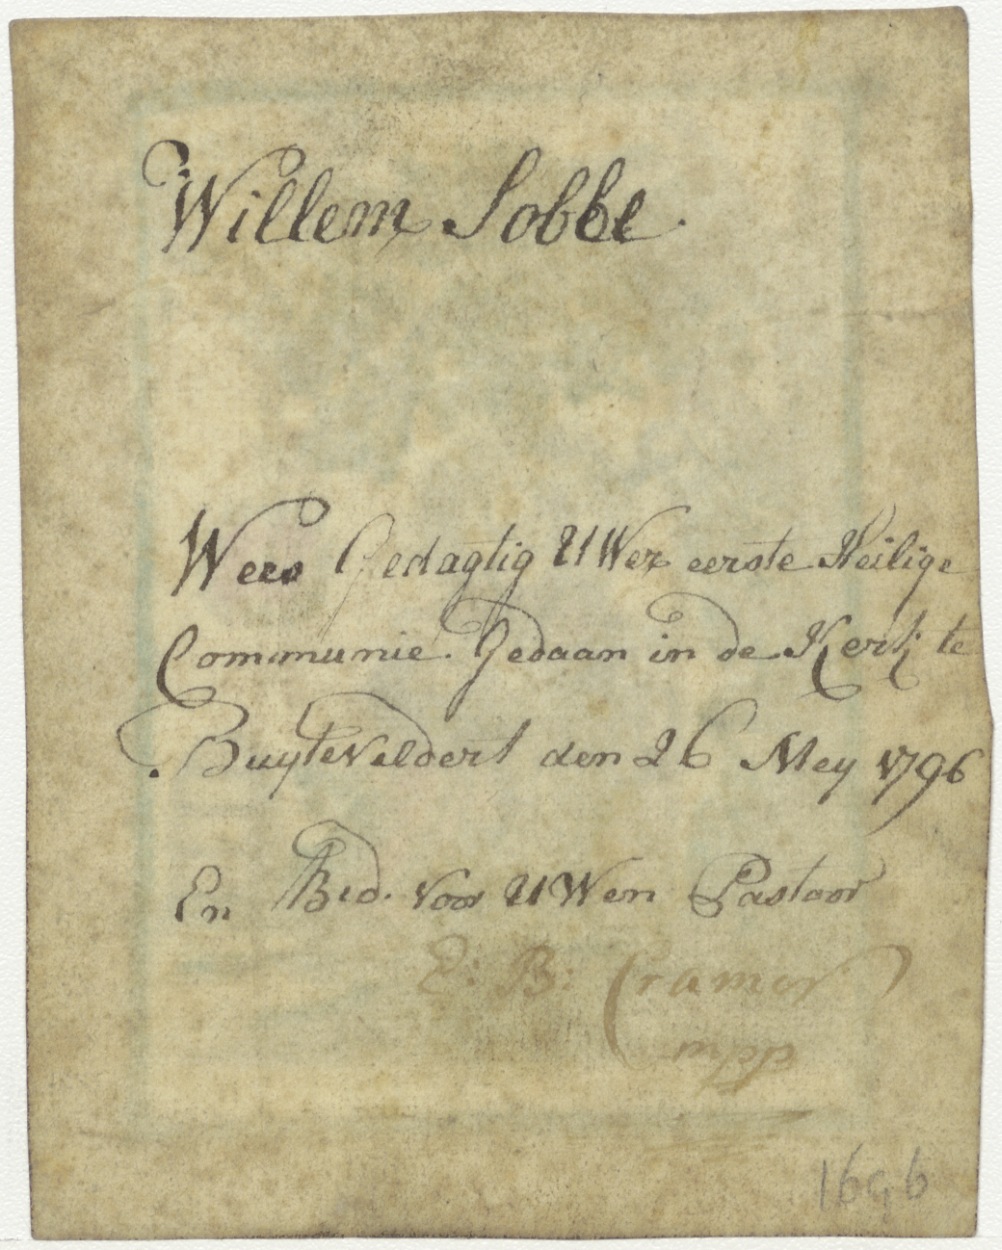 Willem Sobbe.
Wees Gedagtig UWer eerste Heilige
Communie. Gedaan in de Kerk te
Buyteveldert den 26 Mey 1796
En Bid. voor UWen Pastoor
E: B: Cramer
mpp
1696